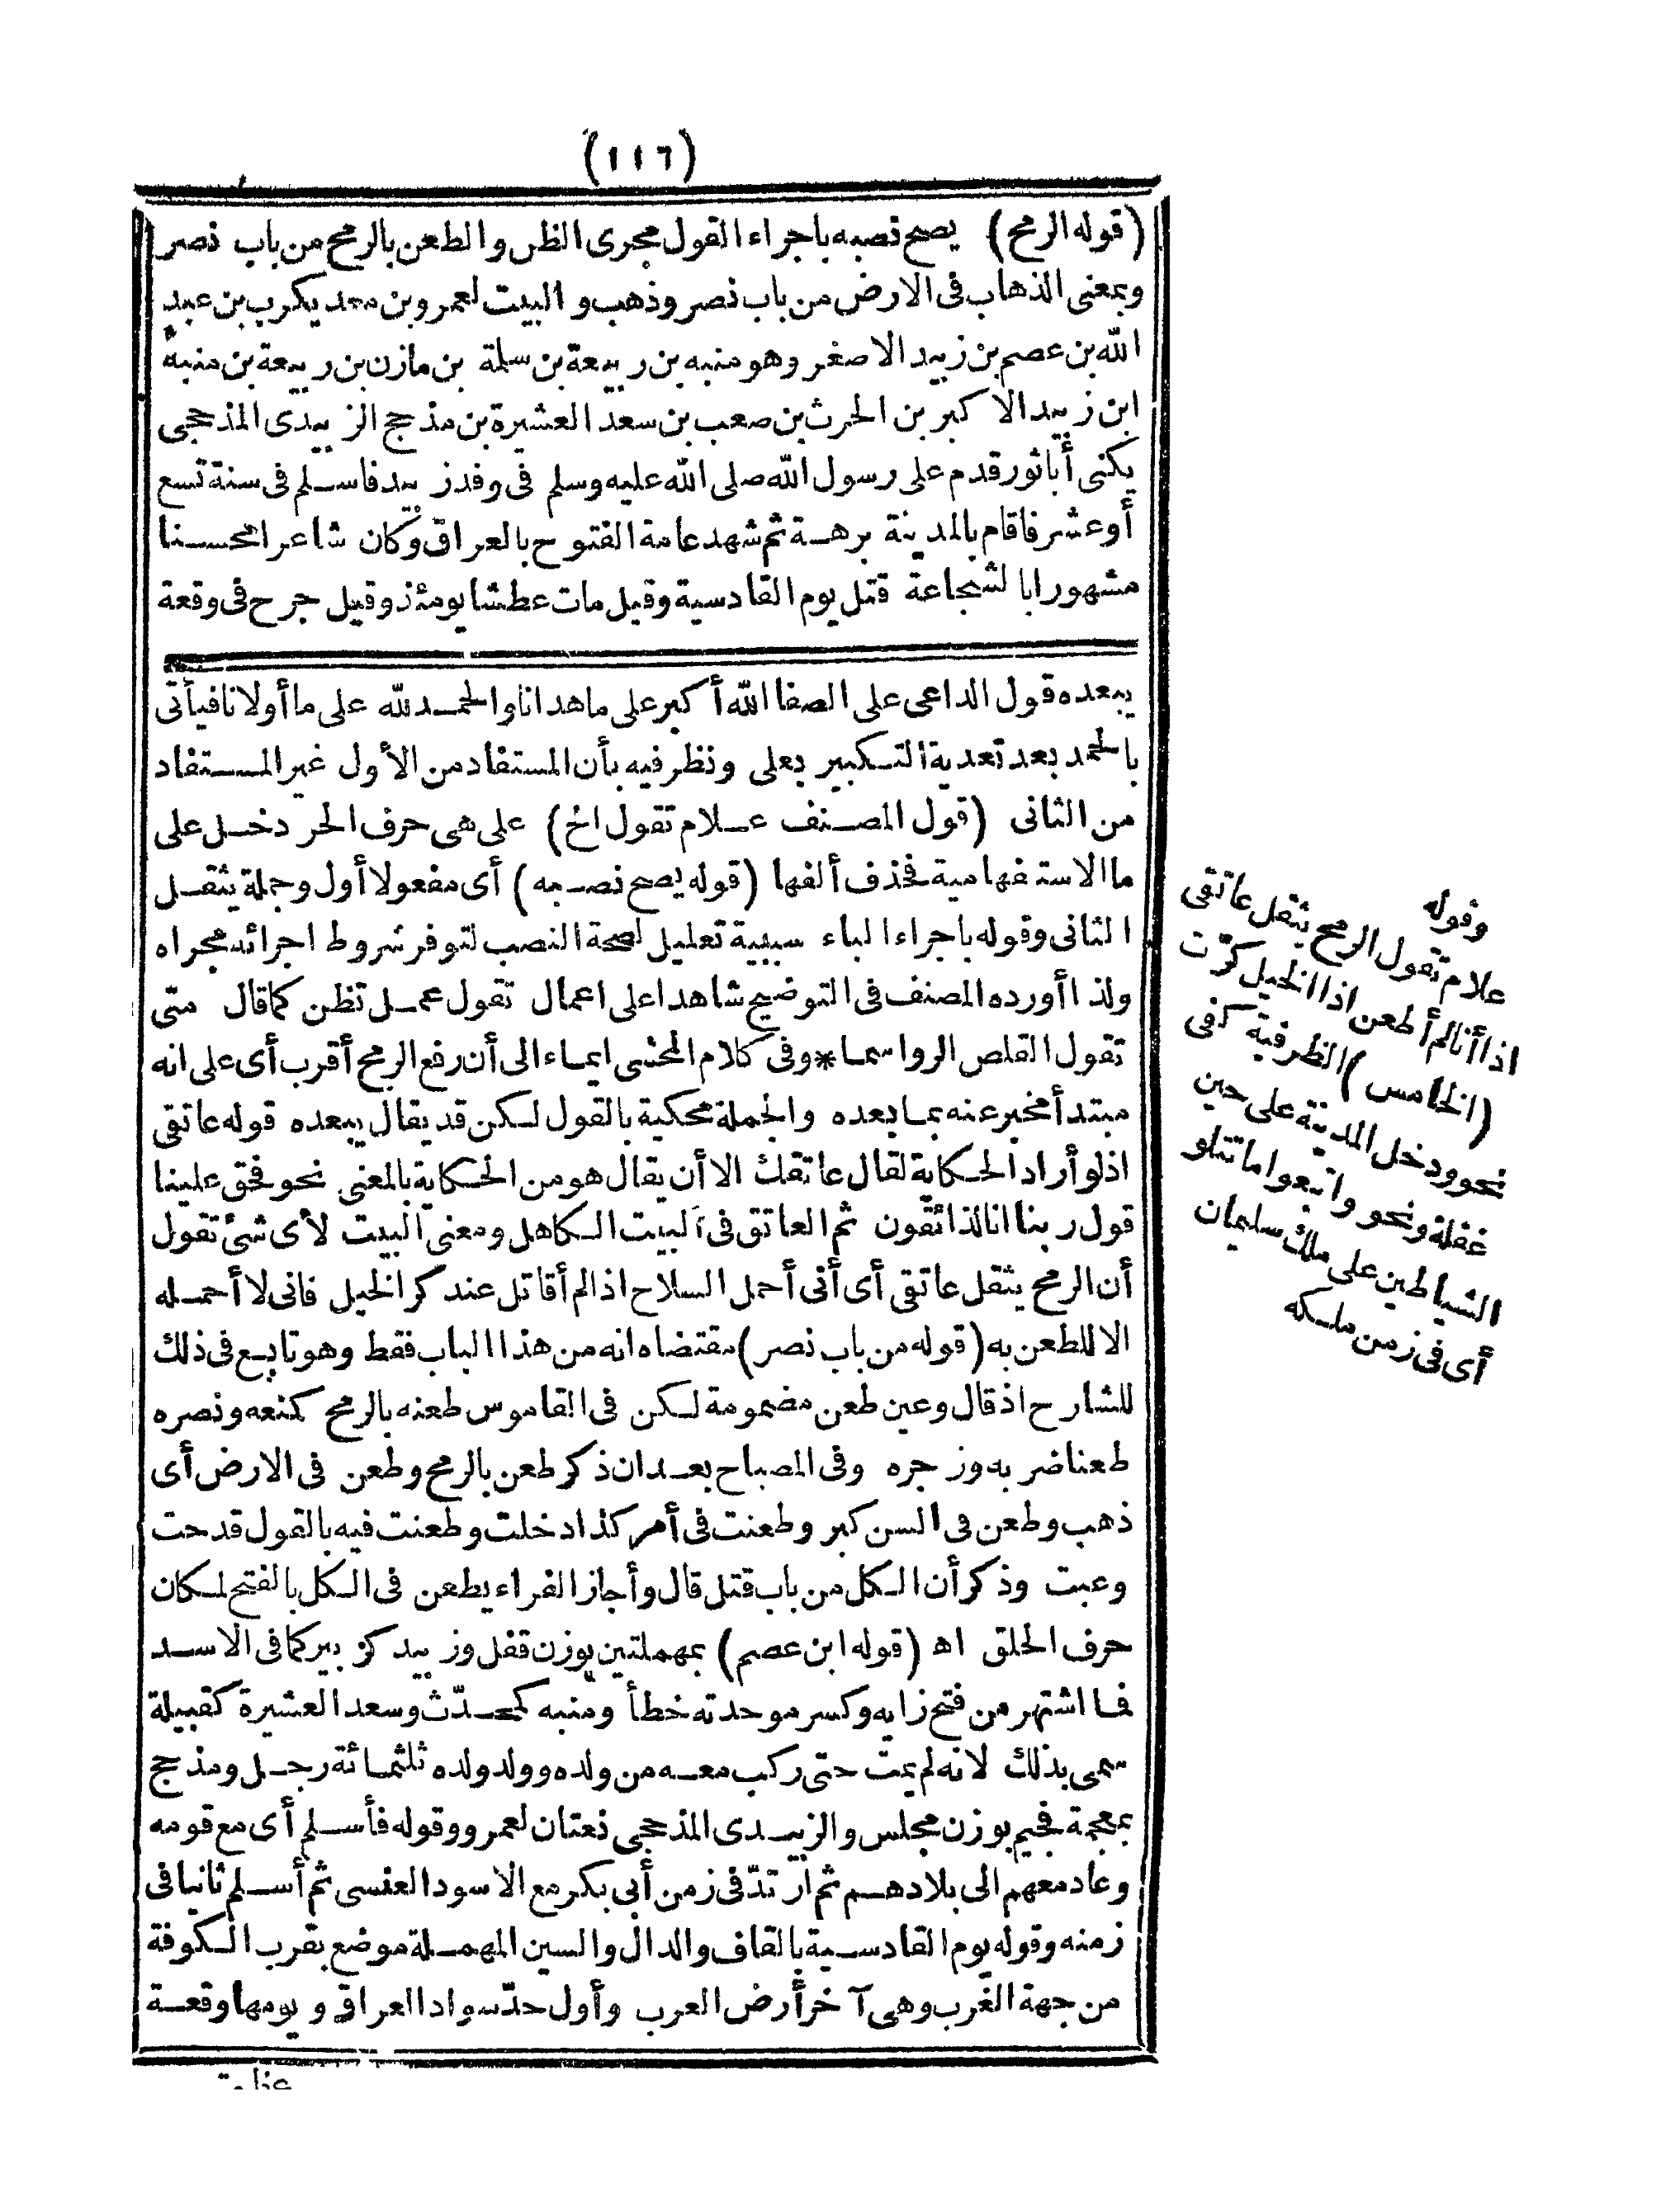 (١١٦)
(قوله الرمح) يصح نصبه باجراء القول مجرى الظن والطعن بالرمح من باب نصر
وبمعنى الذهاب فى الارض من باب نصر وذهب والبيت لعمرو بن معد يكرب بن عبد
الله بن عصم بن زبيد الاصغر وهو منبه بن ربيعة بن سلمة بن مازن بن ربيعة بن منبه
ابن زبيد الاكبر بن الحرث بن صعب بن سعد العشيرة بن مذحج الزبيدى المذحجى
يكنى أبا ثور قدم على رسول الله صلى الله عليه وسلم فى وفد زبيد فاسلم فى سنة تسع
أو عشر فاقام بالمدينة برهة ثم شهد عامة الفتوح بالعراق وكان شاعرا محسنا
مشهورا بالشجاعة قتل يوم القادسية وقيل مات عطشا يومئذ وقيل جرح فى وقعة
يبعده قول الداعى على الصفا الله أكبر على ما هدانا والحمد لله على ما أولانا فيأتى
بالحمد بعد تعدية التكبير بعلى ونظر فيه بأن المستفاد من الأول غير المستفاد
من الثانى (قول المصنف علام تقول الخ) على هى حرف الجر دخل على
ما الاستفهامية فحذف ألفها (قوله يصح نصبه) أى مفعولا أول وجملة يثقل
الثانى وقوله باجراء الباء سببية تعليل لصحة النصب لتوفر شروط اجرائه مجراه
ولذا أورده المصنف فى التوضيح شاهدا على اعمال تقول عمل تظن كما قال متى
تقول القلص الرواسما * وفى كلام المحشى ايماء الى أن رفع الرمح أقرب أى على انه
مبتدأ مخبر عنه بما بعده والجملة محكية بالقول لكن قد يقال يبعده قوله عاتقى
اذ لو أراد الحكاية لقال عاتقك الا أن يقال هو من الحكاية بالمعنى نحو فحق علينا
قول ربنا انا لذائقون ثم العاتق فى البيت الكاهل ومعنى البيت لأى شئ تقول
أن الرمح يثقل عاتقى أى أنى أحمل السلاح اذ الم أقاتل عند كر الخيل فانى لا أحمله
الا للطعن به (قوله من باب نصر) مقتضاه انه من هذا الباب فقط وهو تابع فى ذلك
للشارح اذ قال وعين طعن مضمومة لكن فى القاموس طعنه بالرمح كمنعه ونصره
طعنا ضربه وزجره وفى المصباح بعد ان ذكر طعن بالرمح وطعن فى الارض أى
ذهب وطعن فى السن كبر وطعنت فى أمر كذا دخلت وطعنت فيه بالقول قدحت
وعبت وذكر أن الكل من باب قتل قال وأجاز الفراء يطعن فى الكل بالفتح لمكان
حرف الحلق اه (قوله ابن عصم) بمهملتين بوزن قفل وزبيد كزبير كما فى الاسد
فما اشتهر من فتح زايه وكسر موحدته خطأ ومنبه كمحدّث وسعد العشيرة كقبيلة
سمى بذلك لانه لم يمت حتى ركب معه من ولده وولد ولده ثلثمائة رجل ومذحج
بمعجمة فجيم بوزن مجلس والزبيدى المذحجى نعتان لعمرو وقوله فأسلم أى مع قومه
وعاد معهم الى بلادهم ثم ارتدّ فى زمن أبى بكر مع الاسود العنسى ثم أسلم ثانيا فى
زمنه وقوله يوم القادسية بالقاف والدال والسين المهملة موضع بقرب الكوفة
من جهة الغرب وهى آخر أرض العرب وأول حدّ سواد العراق ويومها وقعة
وقوله
علام تقول الرمح يثقل عاتقى
اذا أنا لم أطعن اذا الخيل كرّت
(الخامس) الظرفية كفى
نحو ودخل المدينة على حين
غفلة ونحو واتبعوا ما تتلو
الشياطين على ملك سليمان
أى فى زمن ملكه